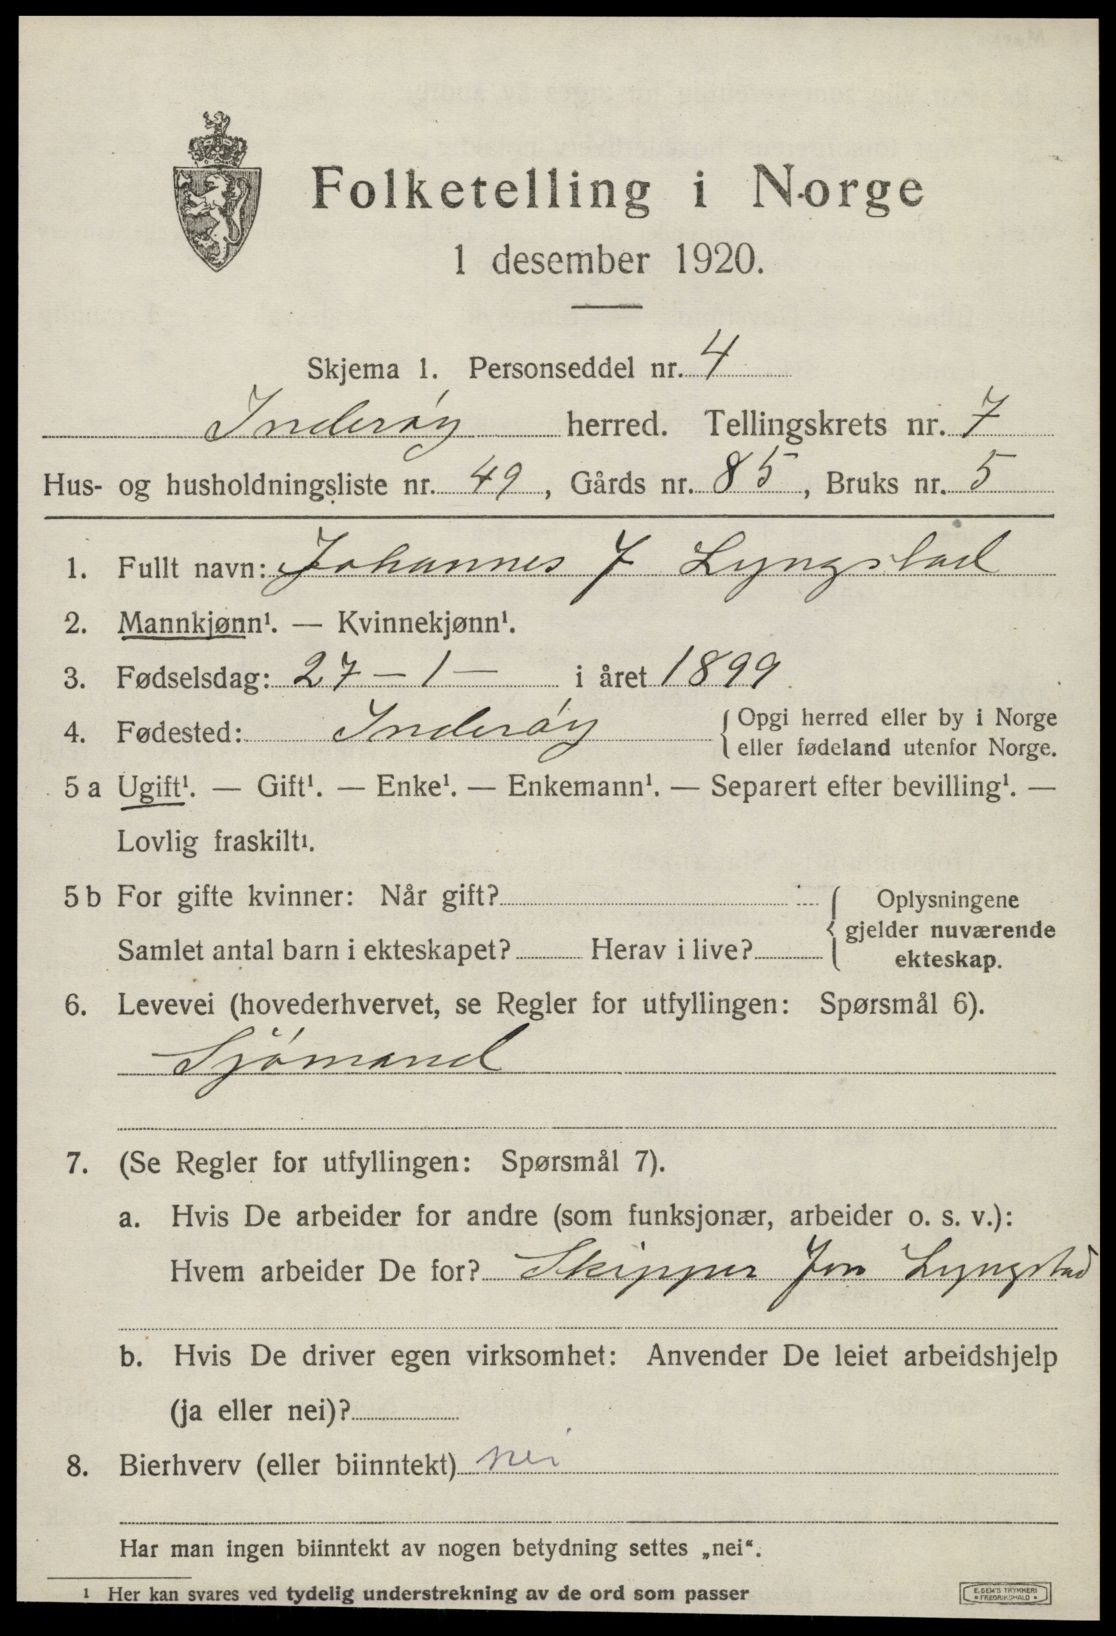 Folketelling i Norge
1 desember 1920.
Skjema 1. Personseddel nr. 4
Inderøy herred. Tellingskrets nr. 7
Hus- og husholdningsliste nr. 49, Gårds nr. 85, Bruks nr. 5
1. Fullt navn: Johannes J Lyngstad
2. Mannkjønn¹. — Kvinnekjønn¹.
3. Fødselsdag: 27 – 1 – i året 1899
4. Fødested: Inderøy { Opgi herred eller by i Norge
eller fødeland utenfor Norge.
5 a Ugift¹. — Gift¹. — Enke¹. — Enkemann¹. — Separert efter bevilling¹. —
Lovlig fraskilt¹.
5 b For gifte kvinner: Når gift? { Oplysningene
gjelder nuværende
Samlet antal barn i ekteskapet? Herav i live? ekteskap.
6. Levevei (hovederhvervet, se Regler for utfyllingen: Spørsmål 6).
Sjømand
7. (Se Regler for utfyllingen: Spørsmål 7).
a. Hvis De arbeider for andre (som funksjonær, arbeider o. s. v.):
Hvem arbeider De for? Skipper Jon Lyngstad
b. Hvis De driver egen virksomhet: Anvender De leiet arbeidshjelp
(ja eller nei)?
8. Bierhverv (eller biinntekt) nei
Har man ingen biinntekt av nogen betydning settes „nei“.
¹ Her kan svares ved tydelig understrekning av de ord som passer
E. SEM'S TRYKKERI
FREDRIKSHALD